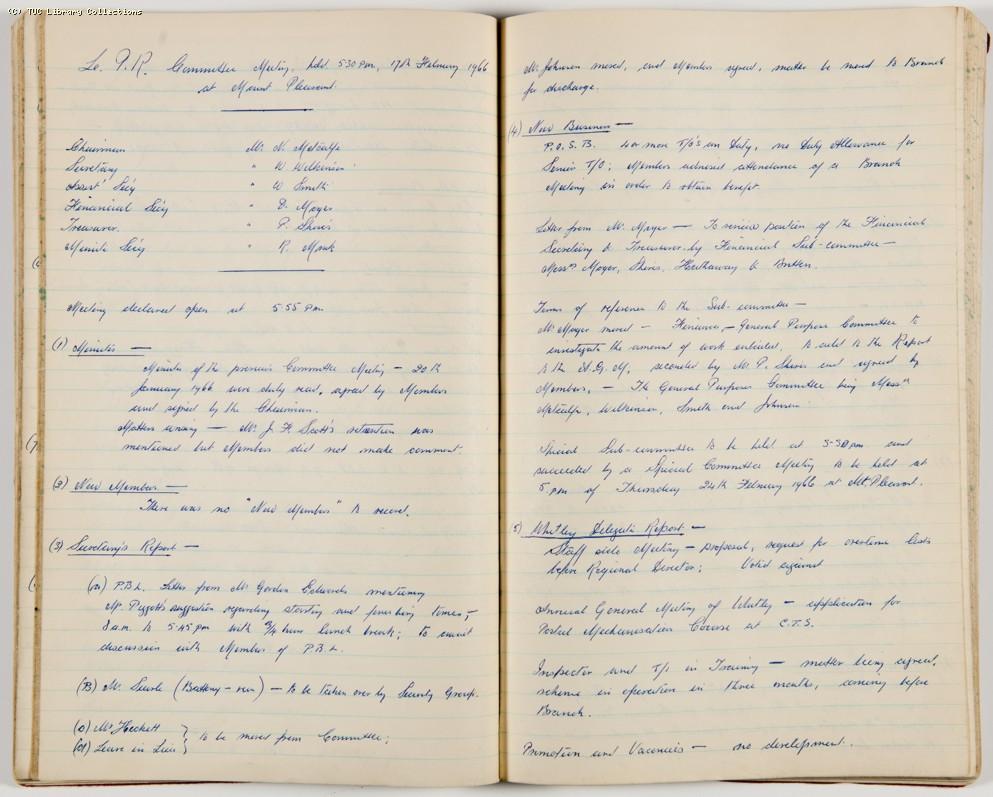 (C) TUC Library Collections
Lo. P.R. Committee Meeting, held 5.30 pm, 17th February 1966
at Mount Pleasant.
Chairman Mr N. Metcalfe
Secretary " W. Wilkinson
Asst Sec'y " W Smith
Financial Sec'y " D. Moyer
Treasurer. " P. Shires
Minute Sec'y " R. Monk
Meeting declared open at 5.55 pm.
(1) Minutes —
Minutes of the previous Committee Meeting — 20th
January 1966 were duly read, agreed by Members
and signed by the Chairman.
Matters arising — Mr J. F. Scott's retention was
mentioned but Members did not make comment.
(2) New Members —
There was no "New Members" to record.
(3) Secretary's Report —
(a) P.B.L. Letter from Mr Gordon Edwards mentioning
Mr. Piggott's suggestion regarding starting and finishing times,—
8 a.m. to 5.45 pm with 3/4 hour lunch break; to await
discussion with Members of P.B.L.
(B) Mr. Searle (Battery - run) — to be taken over by Security Group.
(c) Mr Heckett } to be moved from Committee;
(d) Leave in Lieu }
Mr. Johnson moved, and Members agreed, matter be moved to Branch
for discharge.
(4) New Business —
P.O.S.B. 4 or more T/O's on Duty, no Duty Allowance for
Senior T/O; Members advised attendance of a Branch
Meeting in order to obtain benefit.
Letter from Mr. Moyer — To review position of the Financial
Secretary & Treasurer by Financial Sub-committee —
Messrs Moyer, Shires, Hathaway & Britten.
Terms of reference to the Sub-committee —
Mr Moyer moved — Finance, — General Purpose Committee to
investigate the amount of work entailed, to add to the Report
to the A.G.M, seconded by Mr. P. Shires and agreed by
Members, — The General Purposes Committee being Messrs
Metcalfe, Wilkinson, Smith and Johnson
Special Sub-committee to be held at 3-30 pm and
succeeded by a Special Committee Meeting to be held at
5. pm of Thursday 24th February 1966 at Mt Pleasant.
5) Whitley Delegate Report —
Staff side Meeting — proposal, request for overtime lists
before Regional Director; Voted against
Annual General Meeting of Whitley — application for
Postal Mechanisation Course at C.T.S.
Inspector and T/s in Training — matter being agreed,
scheme in operation in three months, coming before
Branch.
Promotion and Vacancies — no development.